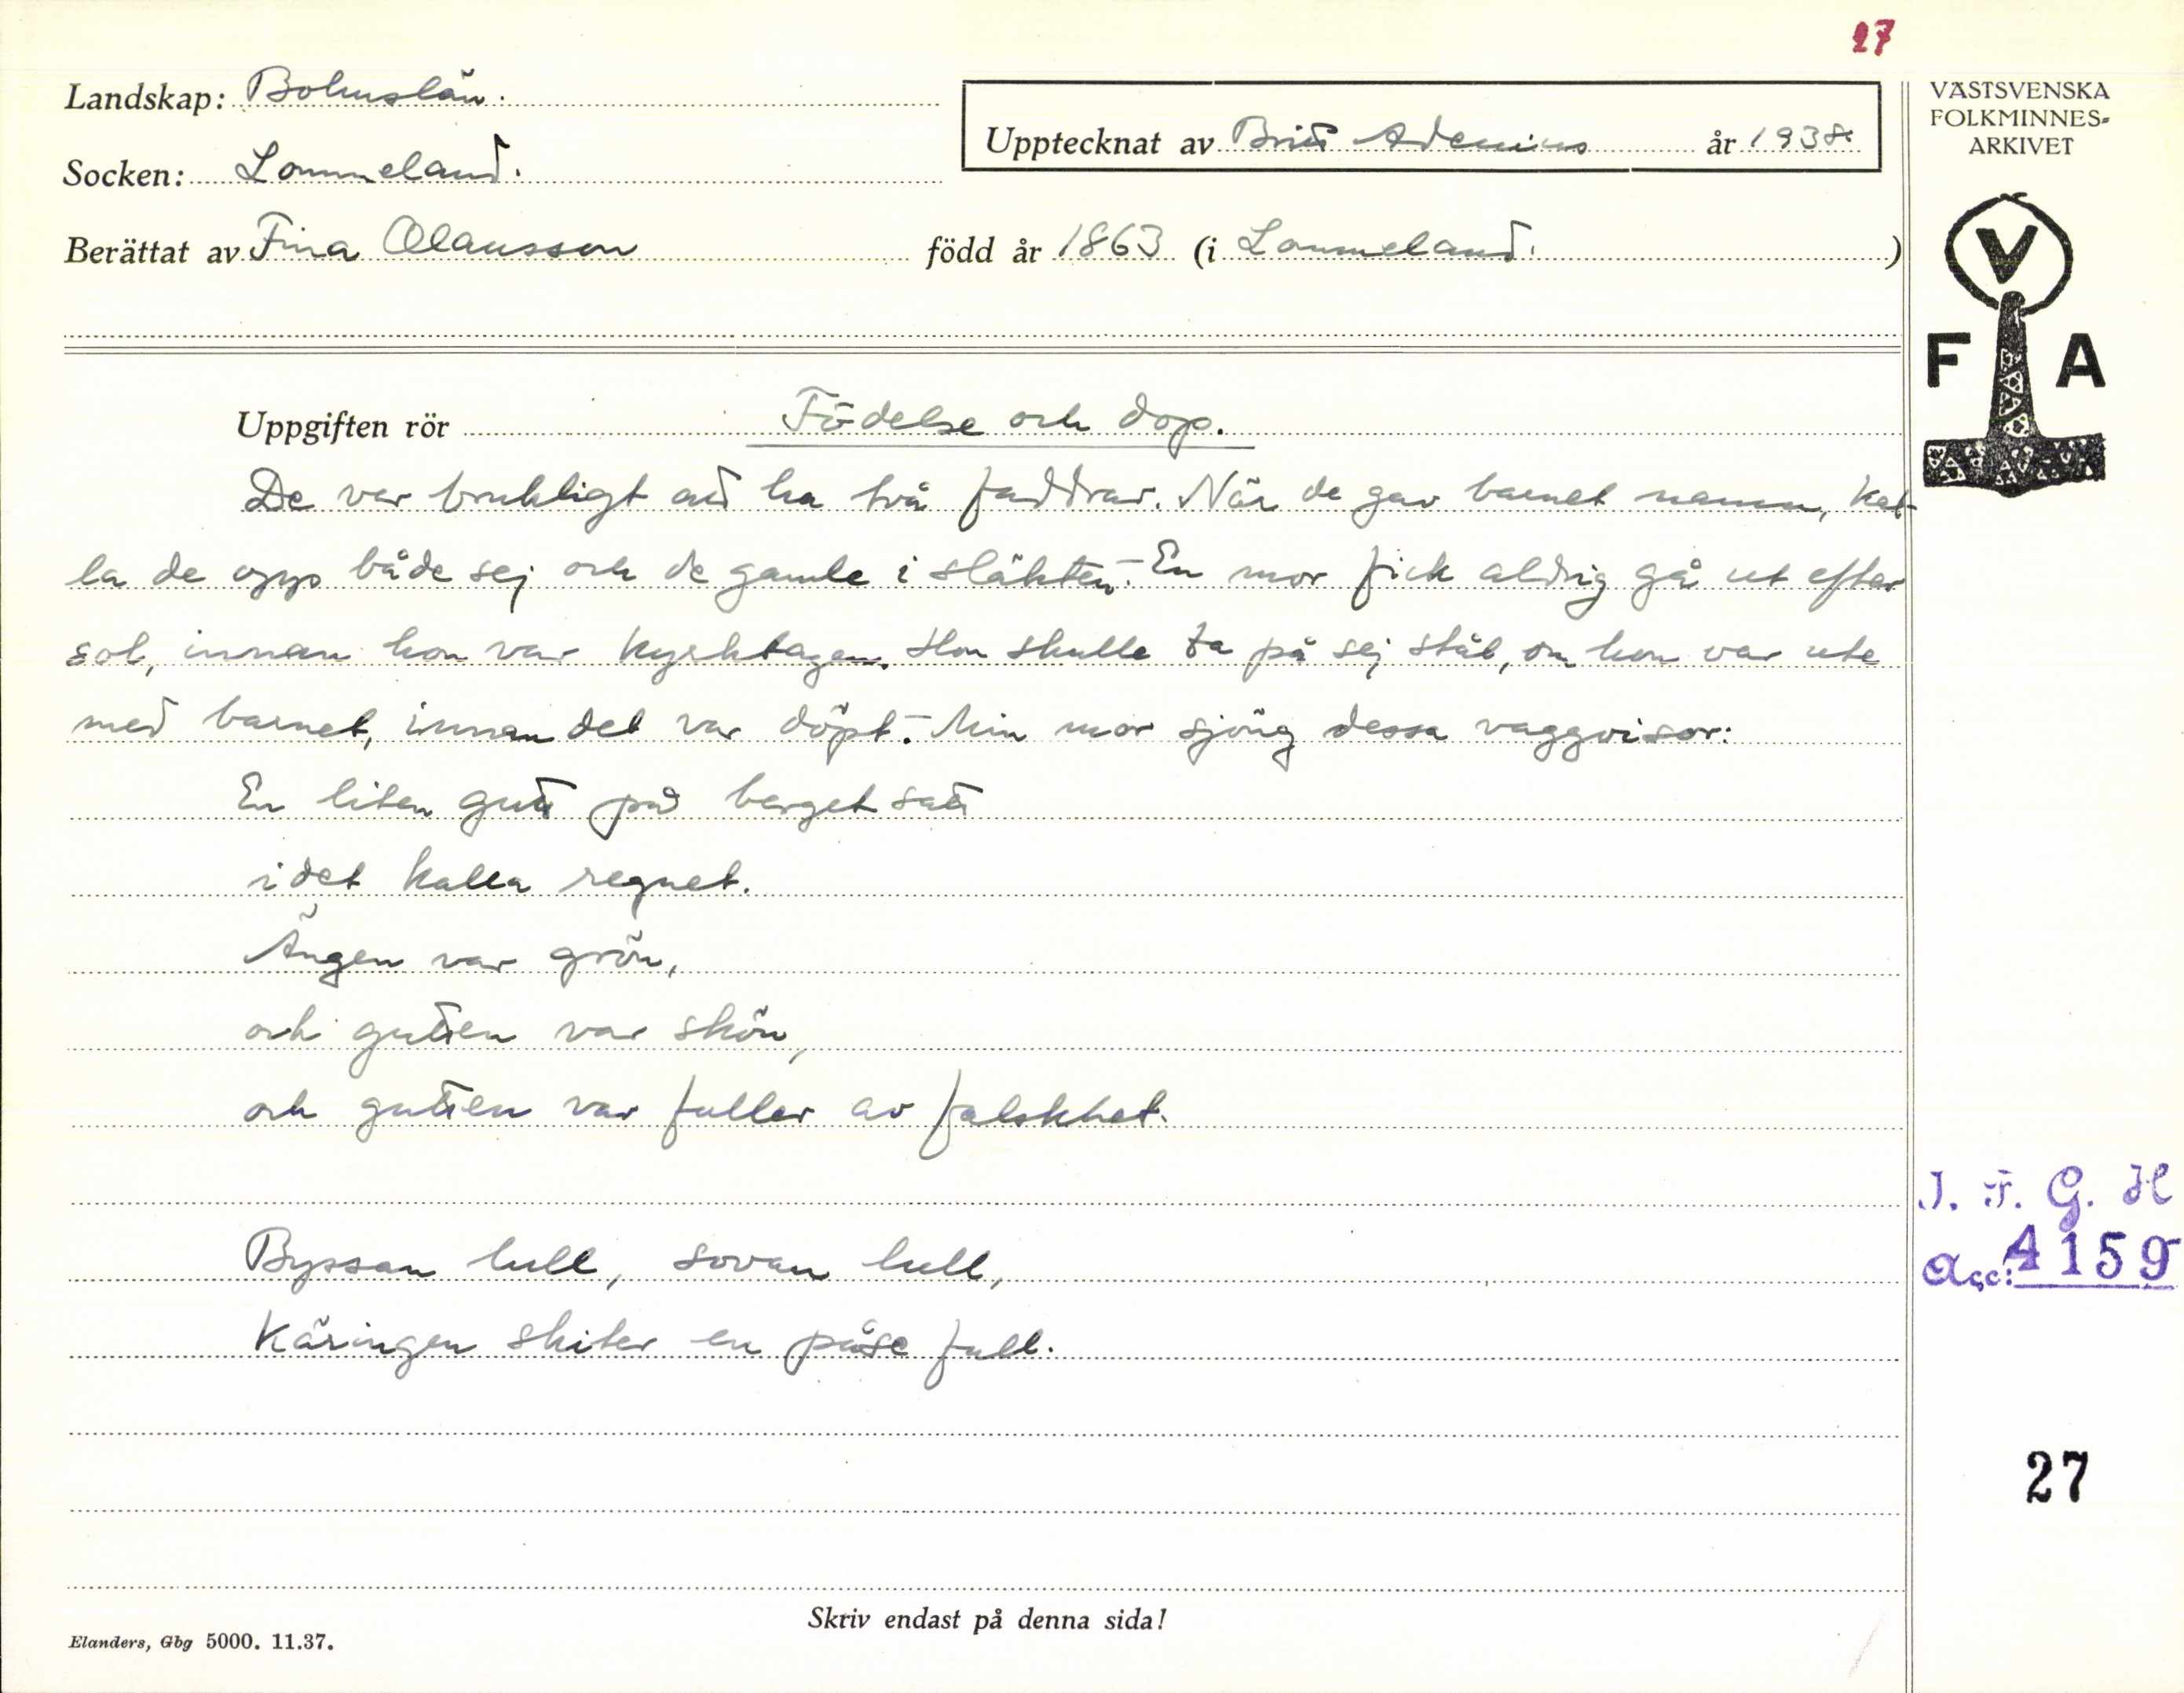 27
Landskap: Bohuslän.
Socken: Lommeland.
Upptecknat av Britt Ademius år 1938.
Berättat av Fina Olausson född år 1863 (i Lommeland.)
VÄSTSVENSKA
FOLKMINNES-
ARKIVET
V
F A
Uppgiften rör Födelse och dop.
De var brukligt att ha två faddrar. När de gav barnet namn, kal-
la de opp både sej och de gamle i släkten. – En mor fick aldrig gå ut efter
sol, innan hon var kyrktagen. Hon skulle ta på sej stål, om hon var ute
med barnet, innan det var döpt. – Min mor sjöng dessa vaggvisor:
En liten gutt på berget satt
i det kalla regnet.
Ängen var grön,
och gutten var skön,
och gutten var fuller av falskhet.
Byssan lull, sovan lull,
Käringen skiter en påse full.
I. F. G. H
Acc: 4159
27
Skriv endast på denna sida!
Elanders, Gbg 5000. 11.37.